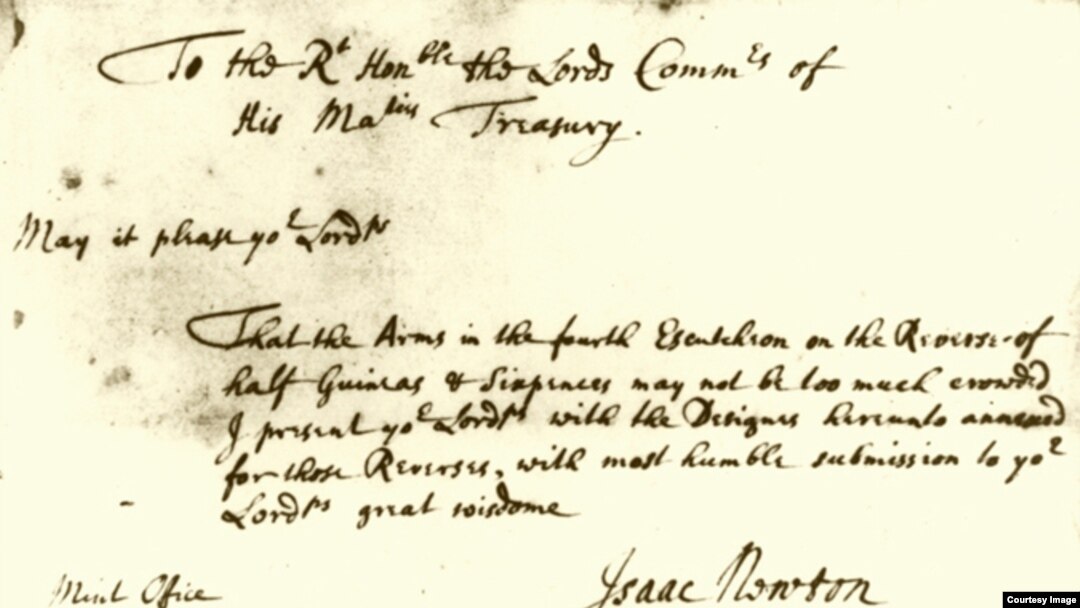 To the Rt Honble the Lords Commrs of
His Maties Treasury.
May it please yor Lordps
That the Arms in the fourth Escutcheon on the Reverse of
half Guineas & Sixpences may not be too much crowded
I present yor Lordps with the Designes hereunto annexed
for those Reverses, with most humble submission to yor
Lordps great wisdome
Mint Office
Isaac Newton
Courtesy Image